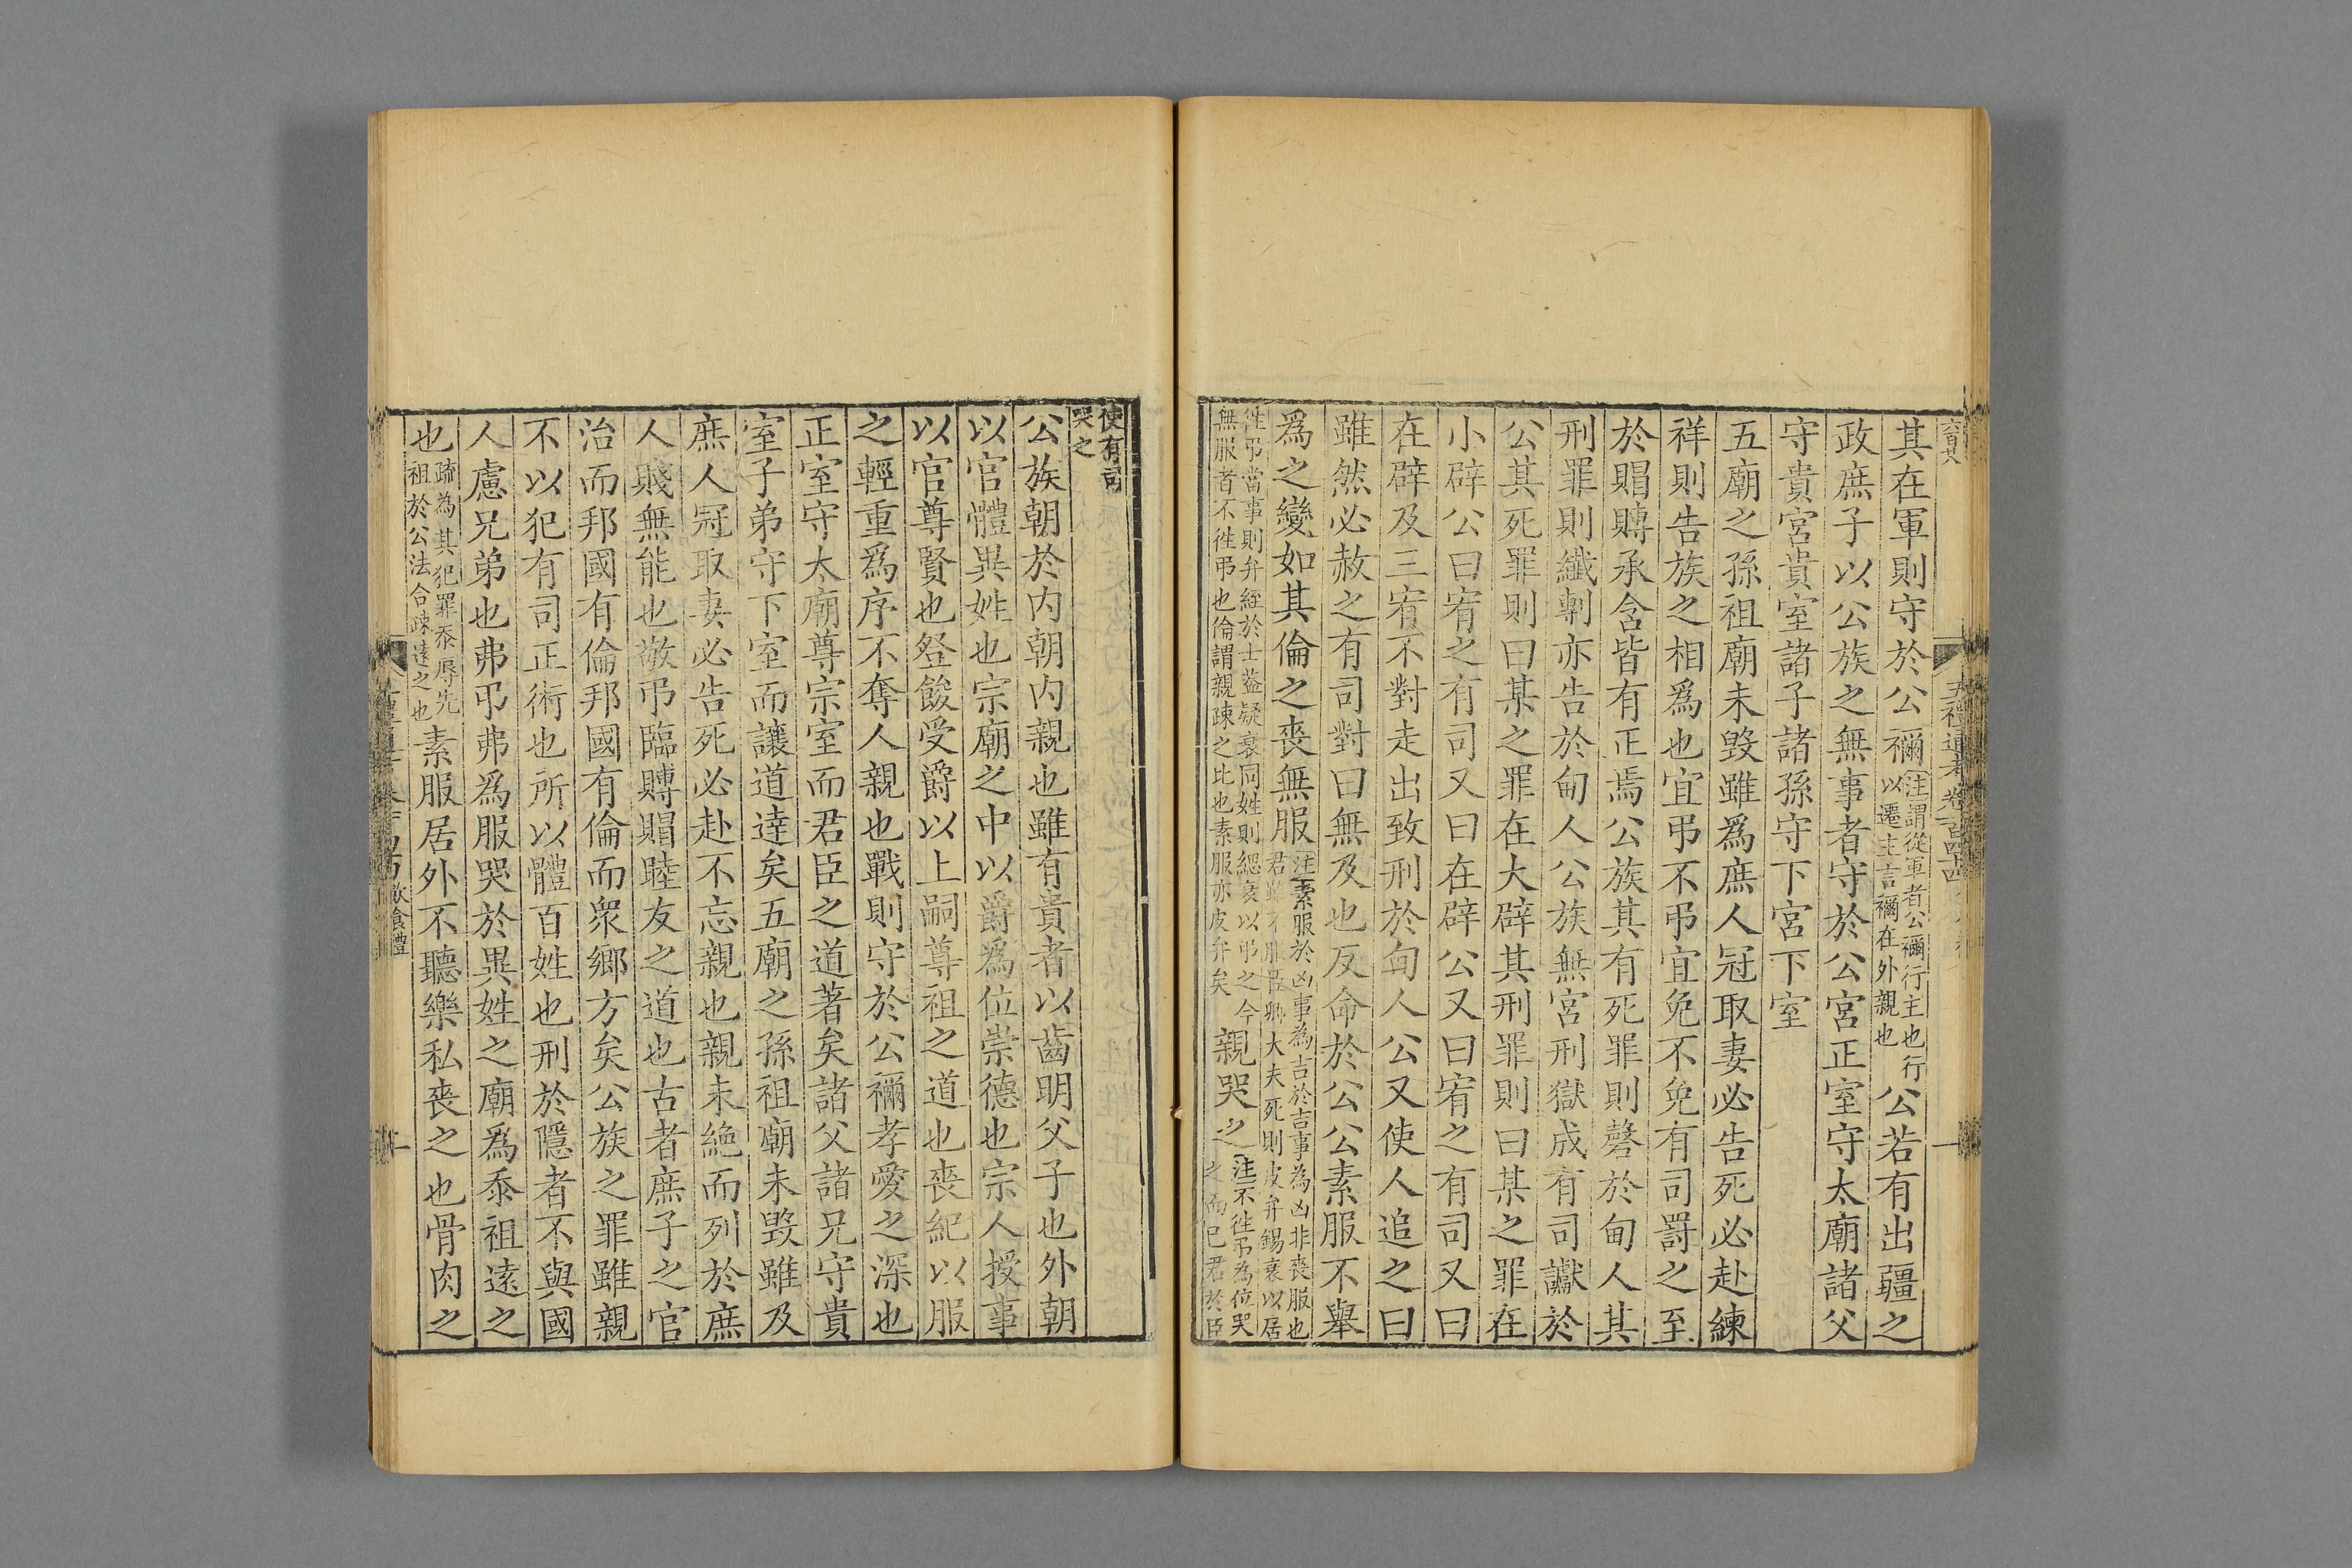 其在軍則守於公禰注謂從軍者公禰行主也行以遷主言禰在外親也公若有出疆之
政庶子以公族之無事者守於公宮正室守太廟諸父
守貴宮貴室諸子諸孫守下宮下室
五廟之孫祖廟未毀雖爲庶人冠取妻必告死必赴練
祥則告族之相爲也宜弔不弔宜免不免有司罰之至
於賵賻承含皆有正焉公族其有死罪則磬於甸人其
刑罪則纖剸亦告於甸人公族無宮刑獄成有司讞於
公其死罪則曰某之罪在大辟其刑罪則曰某之罪在
小辟公曰宥之有司又曰在辟公又曰宥之有司又曰
在辟及三宥不對走出致刑於甸人公又使人追之曰
雖然必赦之有司對曰無及也反命於公公素服不舉
爲之變如其倫之喪無服注素服於凶事為吉於吉事為凶非喪服也君雖不服臣卿大夫死則皮弁錫衰以居
徃弔當事則弁絰於士蓋疑衰同姓則緦衰以弔之今無服者不徃弔也倫謂親疎之比也素服亦皮弁矣親哭之注不徃弔為位哭之而已君於臣
使有司哭之
公族朝於内朝内親也雖有貴者以齒明父子也外朝
以官體異姓也宗廟之中以爵爲位崇德也宗人授事
以官尊賢也登餕受爵以上嗣尊祖之道也喪紀以服
之輕重爲序不奪人親也戰則守於公禰孝愛之深也
正室守太廟尊宗室而君臣之道著矣諸父諸兄守貴
室子弟守下室而讓道達矣五廟之孫祖廟未毀雖及
庶人冠取妻必告死必赴不忘親也親未絶而列於庶
人賤無能也敬弔臨賻賵睦友之道也古者庶子之官
治而邦國有倫邦國有倫而衆鄉方矣公族之罪雖親
不以犯有司正術也所以體百姓也刑於隱者不與國
人慮兄弟也弗弔弗爲服哭於異姓之廟爲忝祖遠之
也疏為其犯罪忝辱先祖於公法合疎遠之也素服居外不聽樂私喪之也骨肉之